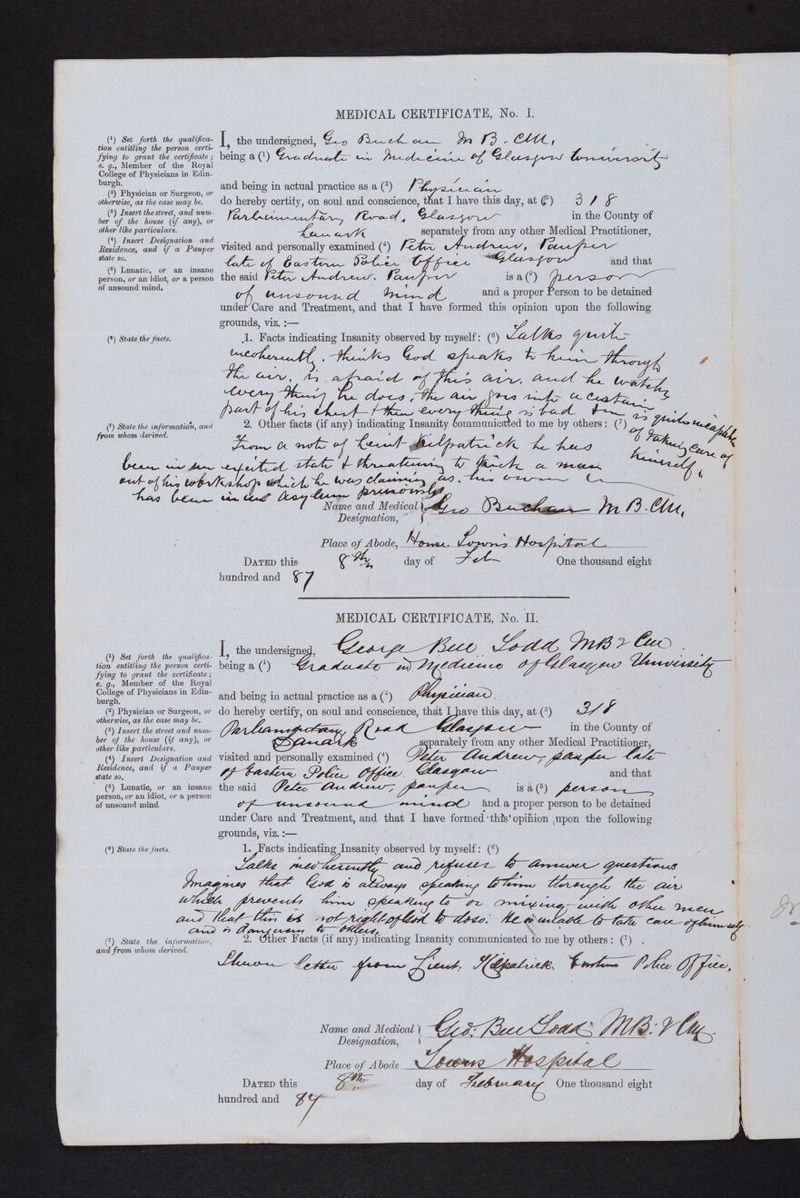 MEDICAL CERTIFICATE, No. I.
(¹) Set forth the qualifica-
tion entitling the person certi-
fying to grant the certificate;
e. g., Member of the Royal
College of Physicians in Edin-
burgh.
(²) Physician or Surgeon, or
otherwise, as the case may be.
(³) Insert the street, and num-
ber of the house (if any), or
other like particulars.
(⁴) Insert Designation and
Residence, and if a Pauper
state so.
(⁵) Lunatic, or an insane
person, or an idiot, or a person
of unsound mind.
(⁶) State the facts.
(⁷) State the information, and
from whom derived.
I, the undersigned, Geo Buchan M B. CM,
being a (¹) Graduate in Medicine of Glasgow University
and being in actual practice as a (²) Physician
do hereby certify, on soul and conscience, that I have this day, at (³) 318
Parliamentary Road, Glasgow in the County of
Lanark separately from any other Medical Practitioner,
visited and personally examined (⁴) Peter Andrew, Pauper
late of Eastern Police Office Glasgow and that
the said Peter Andrew. Pauper is a (⁵) person
of unsound mind and a proper Person to be detained
under Care and Treatment, and that I have formed this opinion upon the following
grounds, viz. :—
1. Facts indicating Insanity observed by myself: (⁶) Talks quite
incoherently, thinks God speaks to him through
the air, is afraid of this air, and he watches
every thing he does, the air goes into a certain
part of his chest & then every thing is bad & is quite incapable
of taking care of
himself,
2. Other facts (if any) indicating Insanity communicated to me by others: (⁷)
From a note of Leiut Kilpatrick he has
been in an excited state & threatening to a man
out of his workshop which he was claiming as his own
has been in asylum previously
Name and Medical Designation, Geo Buchan M B. CM,
Place of Abode, House Town's Hospital
DATED this 8th day of Feb One thousand eight
hundred and 87
MEDICAL CERTIFICATE, No. II.
(¹) Set forth the qualifica-
tion entitling the person certi-
fying to grant the certificate;
e. g., Member of the Royal
College of Physicians in Edin-
burgh.
(²) Physician or Surgeon, or
otherwise, as the case may be.
(³) Insert the street and num-
ber of the house (if any), or
other like particulars.
(⁴) Insert Designation and
Residence, and if a Pauper
state so.
(⁵) Lunatic, or an insane
person, or an idiot, or a person
of unsound mind.
(⁶) State the facts.
(⁷) State the information,
and from whom derived.
I, the undersigned, George Bell Todd MB & CM
being a (¹) Graduate in Medicine of Glasgow University
and being in actual practice as a (²) Physician
do hereby certify, on soul and conscience, that I have this day, at (³) 318
Parliamentary Road Glasgow in the County of
Lanark separately from any other Medical Practitioner,
visited and personally examined (⁴) Peter Andrew, pauper late
of Eastern Police Office Glasgow and that
the said Peter Andrew, pauper is a (⁵) person
of unsound mind and a proper person to be detained
under Care and Treatment, and that I have formed this opinion upon the following
grounds, viz. :—
1. Facts indicating Insanity observed by myself: (⁶)
Talks incoherently and refuses to answer questions
Imagines that God is always speaking to him through the air
which prevents him speaking to or mixing with other men
and that this is not right of God to do so. He is unable to take care of himself
and is dangerous to others.
2. Other Facts (if any) indicating Insanity communicated to me by others: (⁷)
Shewn letter from Lieut: Kilpatrick. Eastern Police Office.
Name and Medical Designation, Geo. Bell Todd MB: & CM
Place of Abode Towns Hospital
DATED this 8th day of February One thousand eight
hundred and 87